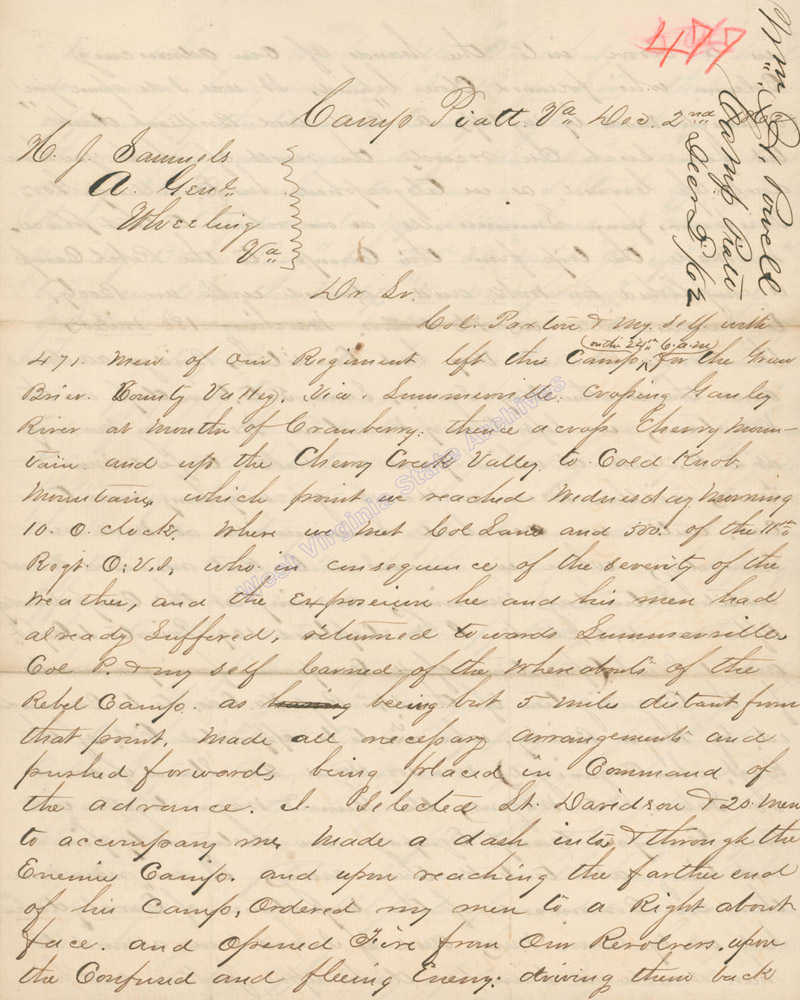 477
Wm. H. Powell
Camp Piatt
Decr 2 /62
Camp Piatt. Va Dec. 2nd
H. J. Samuels
A. Genl.
Wheeling
Va
Dr Sr.
Col. Paxton & My self with
(on the 24th 6. a.m)
471. Men of Our Regiment left this Camp, for the Green
Brier. County Valley, Via. Summerville. Crossing Gauley
River at Mouth of Cranberry. thence across Cherry Moun-
tain. and up the Cherry Creek Valley. to Cold Knob.
Mountain, which point we reached Wednesday Morning
10. O. clock. Where we Met Col Lane and 500. of the 11th
Regt. O.V.I, who in consequence of the severity of the
weather, and the exposeiure he and his men had
already suffered, returned towards Summerville.
Col P. & my self learned of the whereabouts of the
Rebel Camp. as having beeing but 5 miles distant from
that point, Made all necessary arrangements and
pushed forward, being placed in Command of
the advance. I. Selected Lt. Davidson & 20. Men
to accompany me, Made a dash into & through the
Enemie Camp. and upon reaching the farther end
of his Camp, Ordered my men to a Right about
face. and Opened Fire from Our Revolvers. upon
the Confused and fleeing Enemy: driving them back
West Virginia State Archives